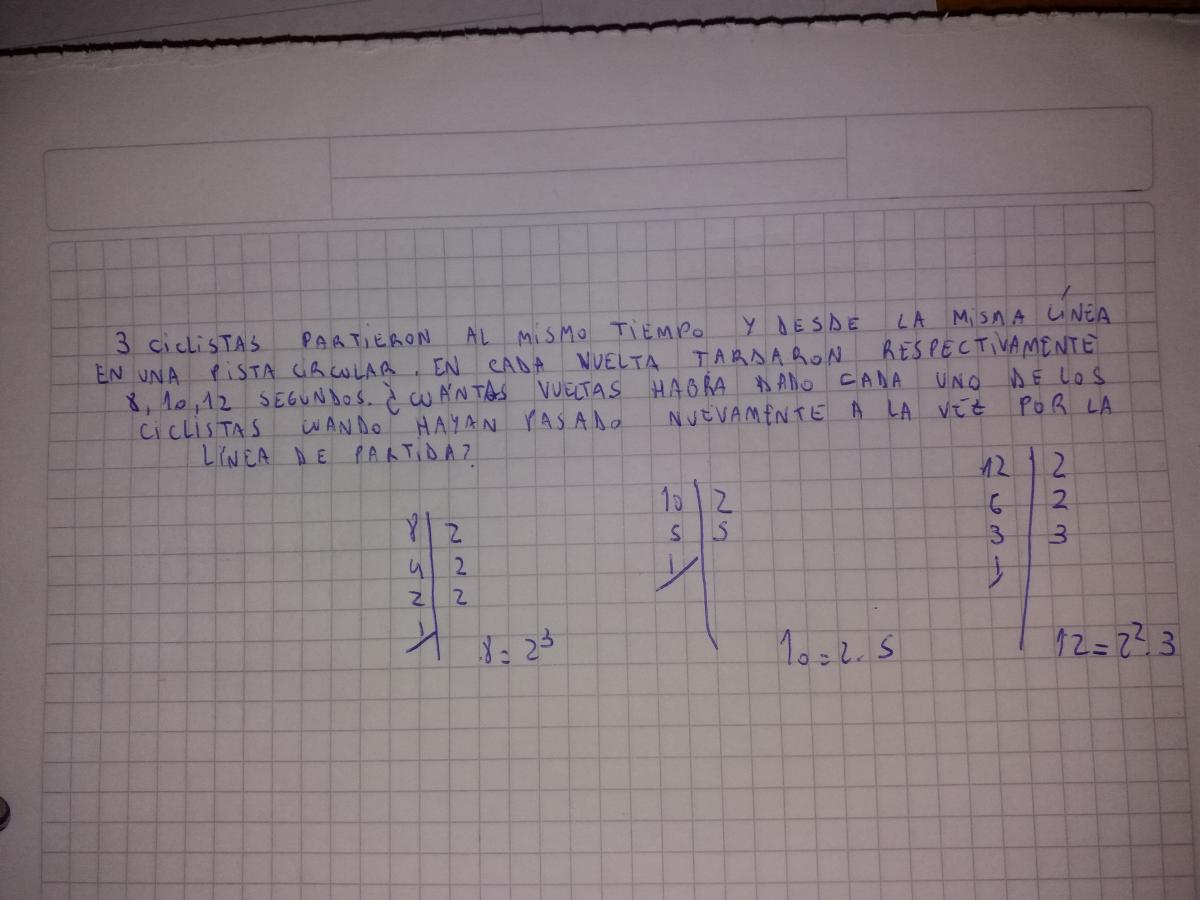 3 CICLISTAS PARTIERON AL MISMO TIEMPO Y DESDE LA MISMA LÍNEA
EN UNA PISTA CIRCULAR. EN CADA VUELTA TARDARON RESPECTIVAMENTE
8, 10, 12 SEGUNDOS. ¿CUÁNTAS VUELTAS HABRÁ DADO CADA UNO DE LOS
CICLISTAS CUANDO HAYAN PASADO NUEVAMENTE A LA VEZ POR LA
LÍNEA DE PARTIDA?
8 | 2
4 | 2
2 | 2
1
8 = 2³
10 | 2
5 | 5
1
10 = 2 . 5
12 | 2
6 | 2
3 | 3
1
12 = 2² . 3